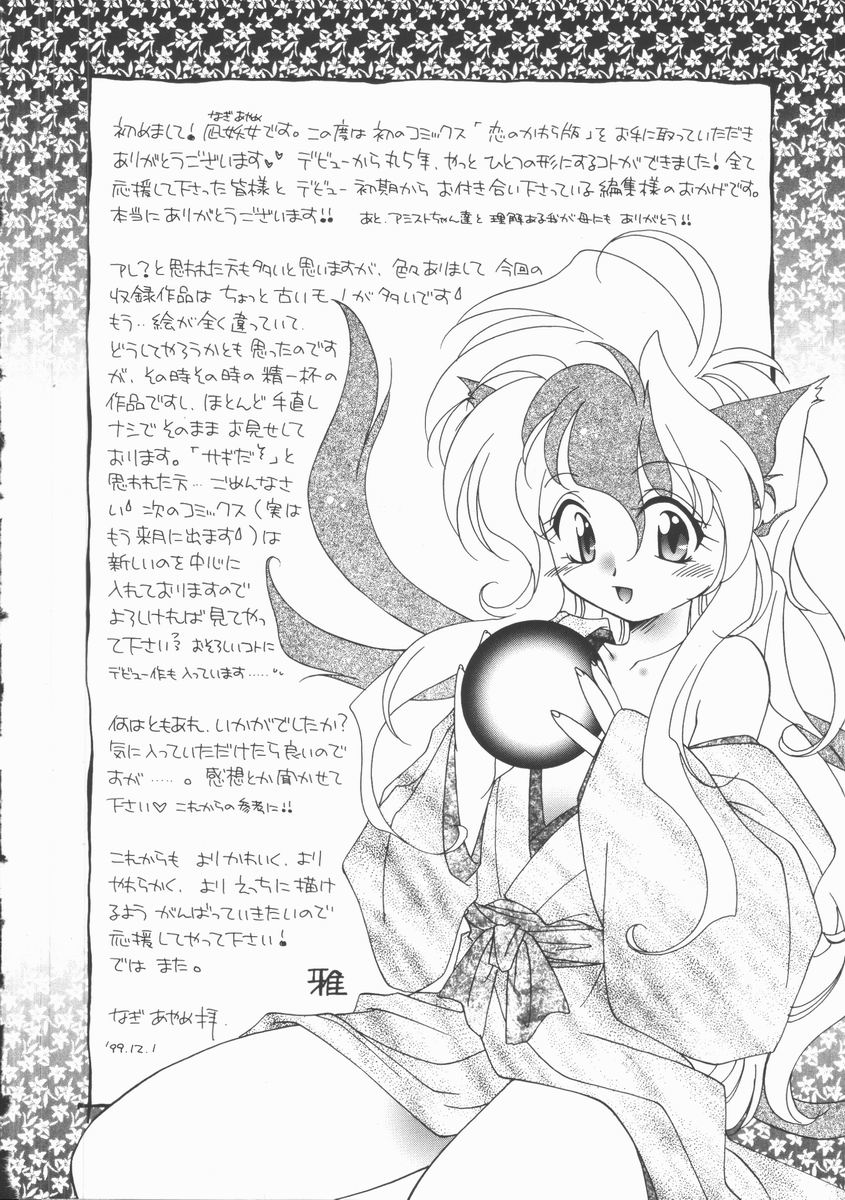 なぎあやめ
初めまして!凪妖女です。この度は初のコミックス「恋のかわら版」をお手に取っていただき
ありがとうございます♥♥ デビューから丸5年、やっとひとつの形にするコトができました!全て
応援して下さった皆様とデビュー初期からお付き合い下さっている編集様のおかげです。
本当にありがとうございます!! あと、アミストちゃん達と理解ある我が母にもありがとう!!
アレ?と思われた方も多いと思いますが、色々ありまして今回の
収録作品はちょっと古いモノが多いです
もう‥絵が全く違っていて、
どうしてやろうかとも思ったのです
が、その時その時の精一杯の
作品ですし、ほとんど手直し
ナシでそのままお見せして
おります。「サギだぞ」と
思われた方…ごめんなさ
い 次のコミックス(実は
もう来月に出ます)は
新しいのを中心に
入れておりますので
よろしければ見てやっ
て下さい? おそろしいコトに
デビュー作も入っています……
何はともあれ、いかがでしたか?
気に入っていただけたら良いので
すが……。感想とか聞かせて
下さい♡ これからの参考に!!
これからも よりかわいく、より
やわらかく、よりえっちに描け
るよう がんばっていきたいので
応援してやって下さい!
では また。
雅
なぎ あやめ 拝.
'99.12.1